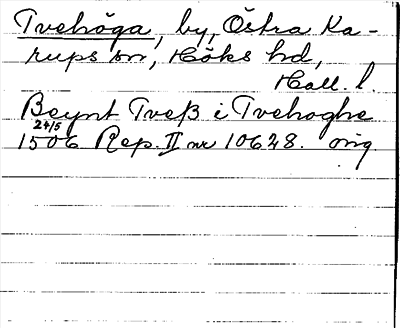 Tvehöga, by, Östra Ka-
rups sn, Höks hd,
Hall. l.
Beynt Tveß i Tvehoghe
24/5
1506 Rep. II nr 10628. orig